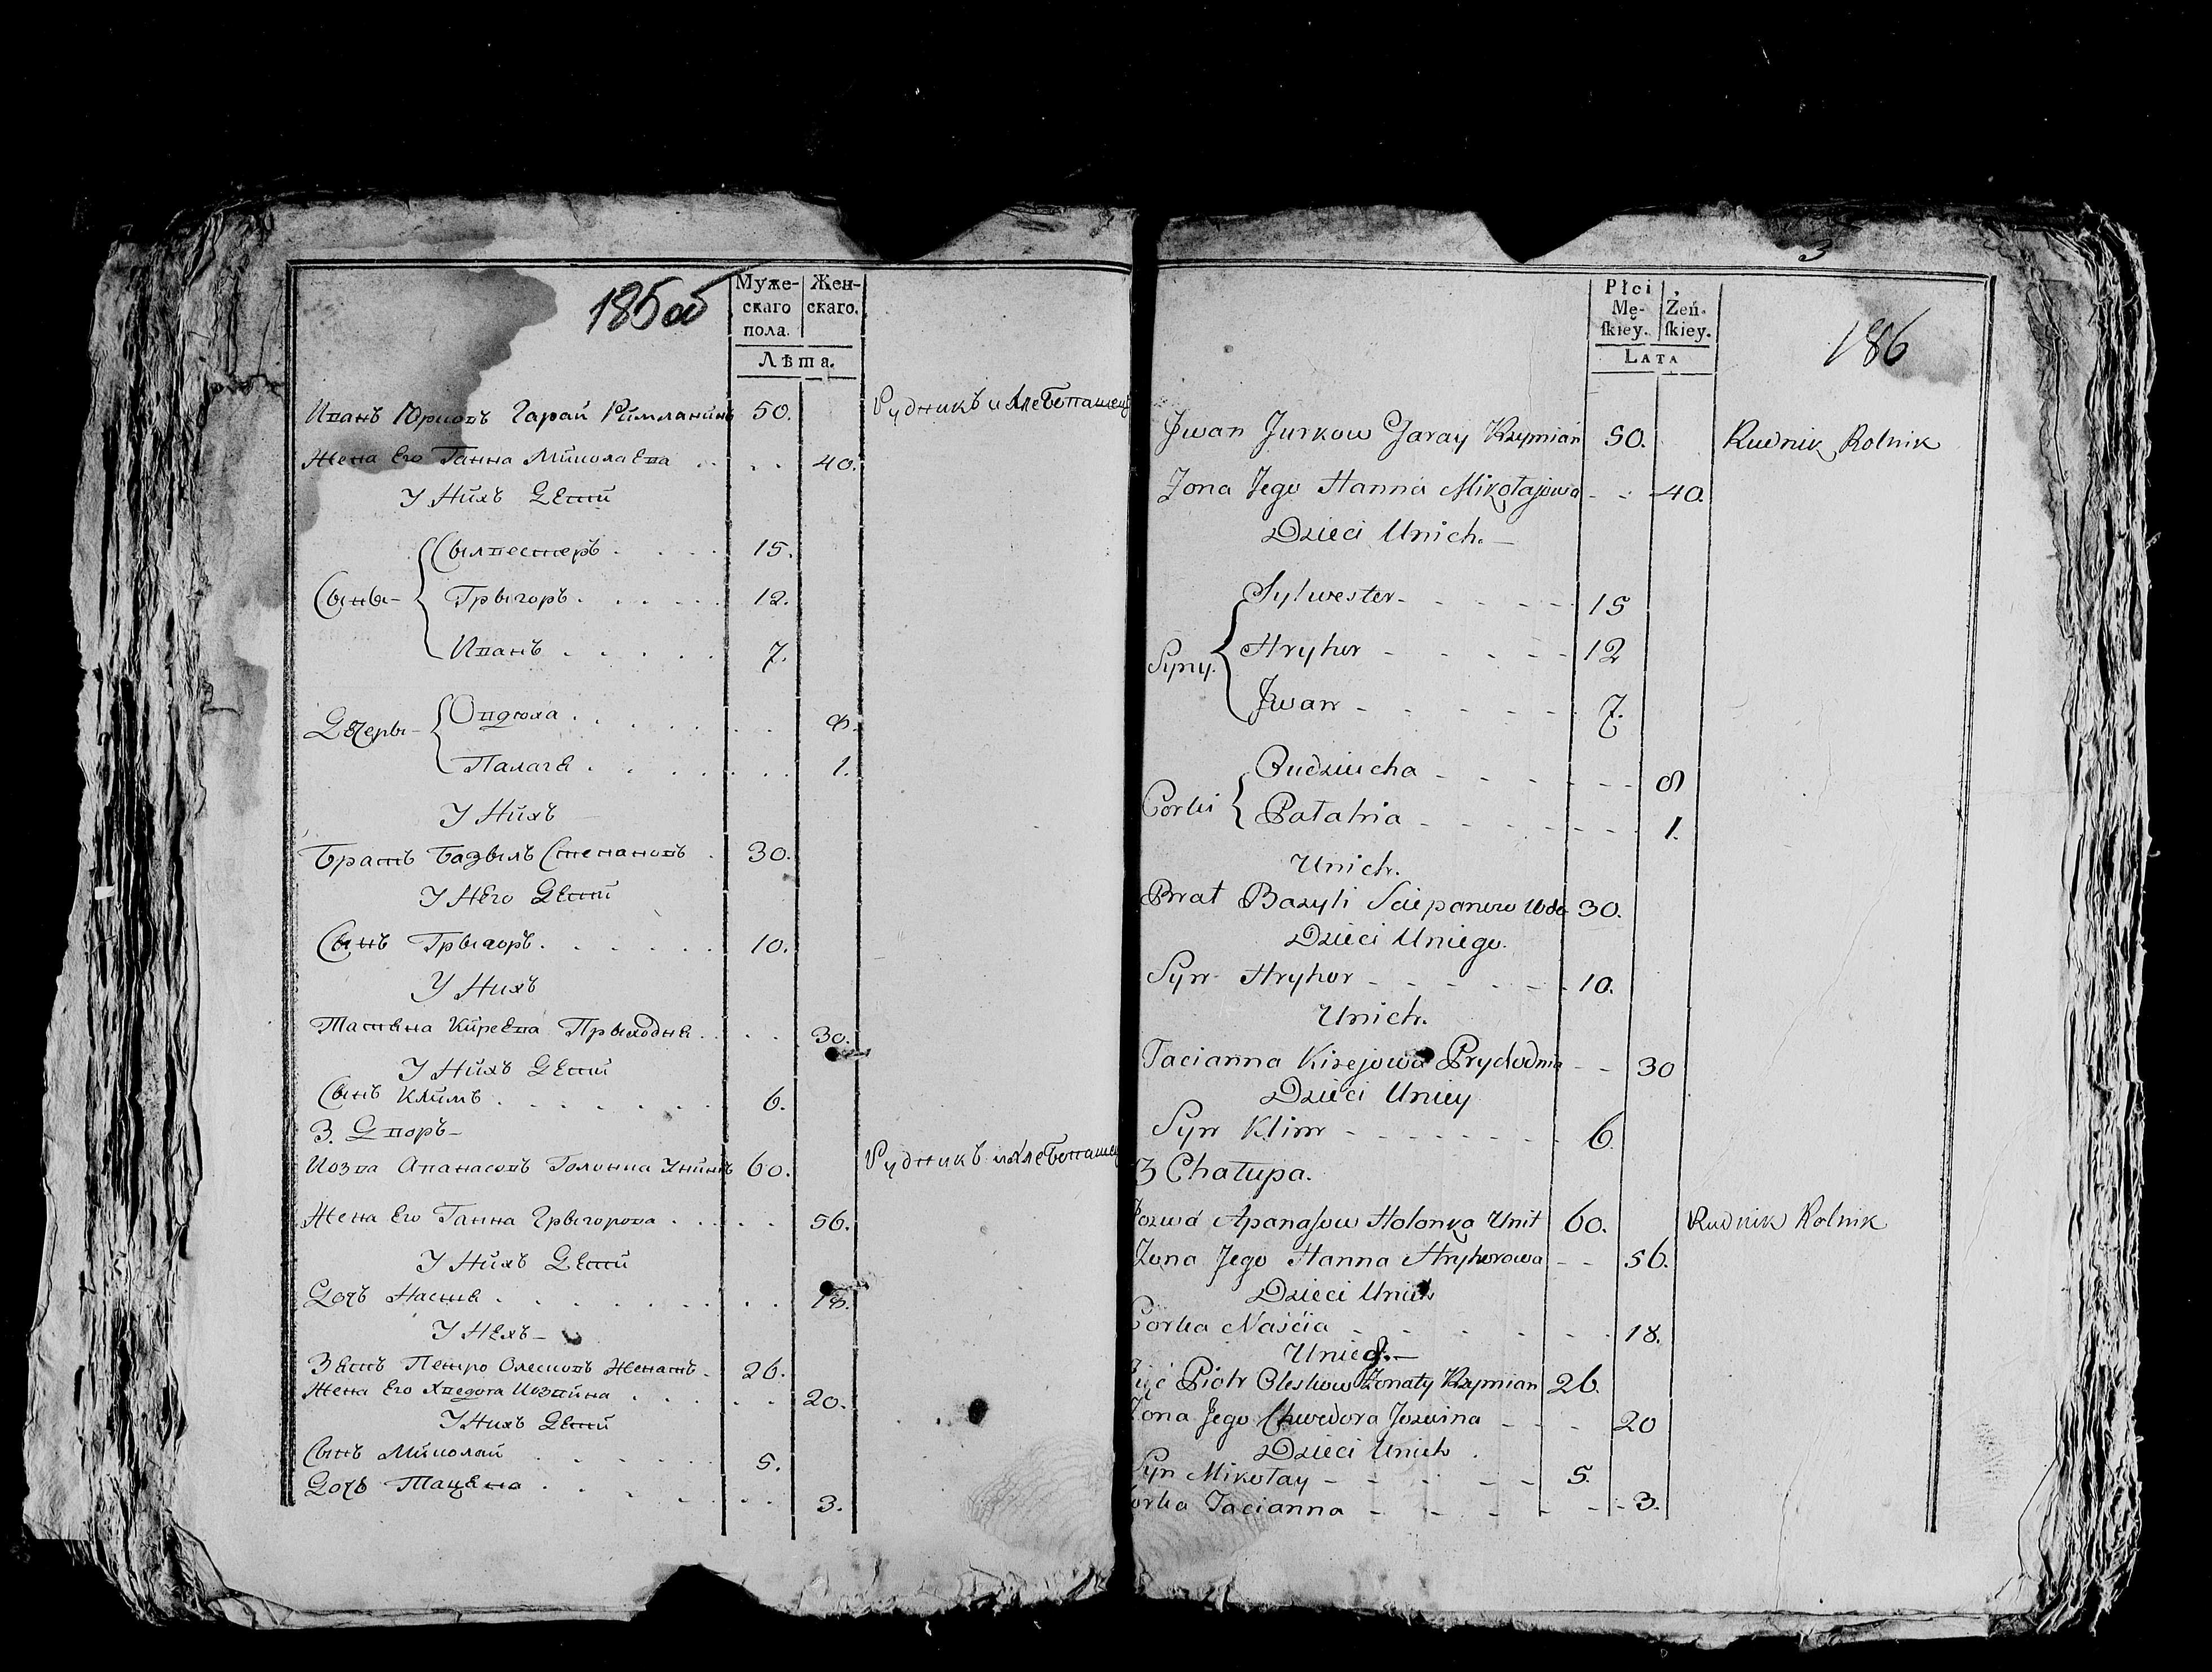 185 об
Муже-
скаго
пола.
Жен-
скаго.
Лѣта.
Иванъ Юрковъ Гарай Римлянинъ 50. Рудникъ и хлебопашец
Жена Его Ганна Миколаева . . . . 40.
У Нихъ Дети
Сыны-
Сылвестеръ . . . . 15.
Грыгоръ . . . . . 12.
Иванъ . . . . . 7.
Дочеры-
Овдюха . . . . . . . 8.
Палагѣ . . . . . . . 1.
У Нихъ
Братъ Базыль Степановъ . 30.
У Него Дети
Сынъ Грыгоръ . . . . . . 10.
У Нихъ
Татьяна Киреева Прыходнѣ . . . . 30.
У Нихъ Дети
Сынъ Климъ . . . . . . . 6.
3. Дворъ-
Иозва Апанасовъ Голонка Унинъ 60. Рудникъ и хлебопашец
Жена Его Ганна Грыгорова . . . . . 56.
У Нихъ Дети
Дочъ Настѣ . . . . . . . . . . 18.
У Нехъ-
Зеть Петро Олесковъ Женатъ . 26.
Жена Его Хведора Иозвина . . . . . . 20.
У Нихъ Дети
Сынъ Миколай . . . . . . 5.
Дочъ Тацѣна . . . . . . . 3.
3
186
Płci
Mę-
ſkiey.
Żeń-
ſkiey.
LATA
Jwan Jurkow Garay Rzymian 50. Rudnik Rolnik
Zona Jego Hanna Mikołajowa - - 40.
Dzieci Unich.-
Syny.
Sylwester - - - - - 15
Hryhor - - - - - 12
Jwan - - - - - 7.
Corki
Oudziucha - - - - - - 8
Pałahia - - - - - - - 1.
Unich.
Brat Bazyli Sciepanow Wdo 30.
Dzieci Uniego.
Syn Hryhor - - - - - - 10.
Unich.
Tacianna Kirejowa Prychodnia - - 30
Dzieci Uniey
Syn Klim - - - - - - - 6.
3 Chałupa.
Jozwa Apanasow Holonka Unit 60. Rudnik Rolnik
Zona Jego Hanna Hryhorowa - - 56.
Dzieci Unich
Corka Naścia - - - - - - 18.
Unich.-
Zięć Piotr Oleskow Zonaty Rzymian 26.
Zona Jego Chwedora Jozwina - - - 20
Dzieci Unich .
Syn Mikołay - - - - - - 5.
Corka Tacianna - - - - - - 3.